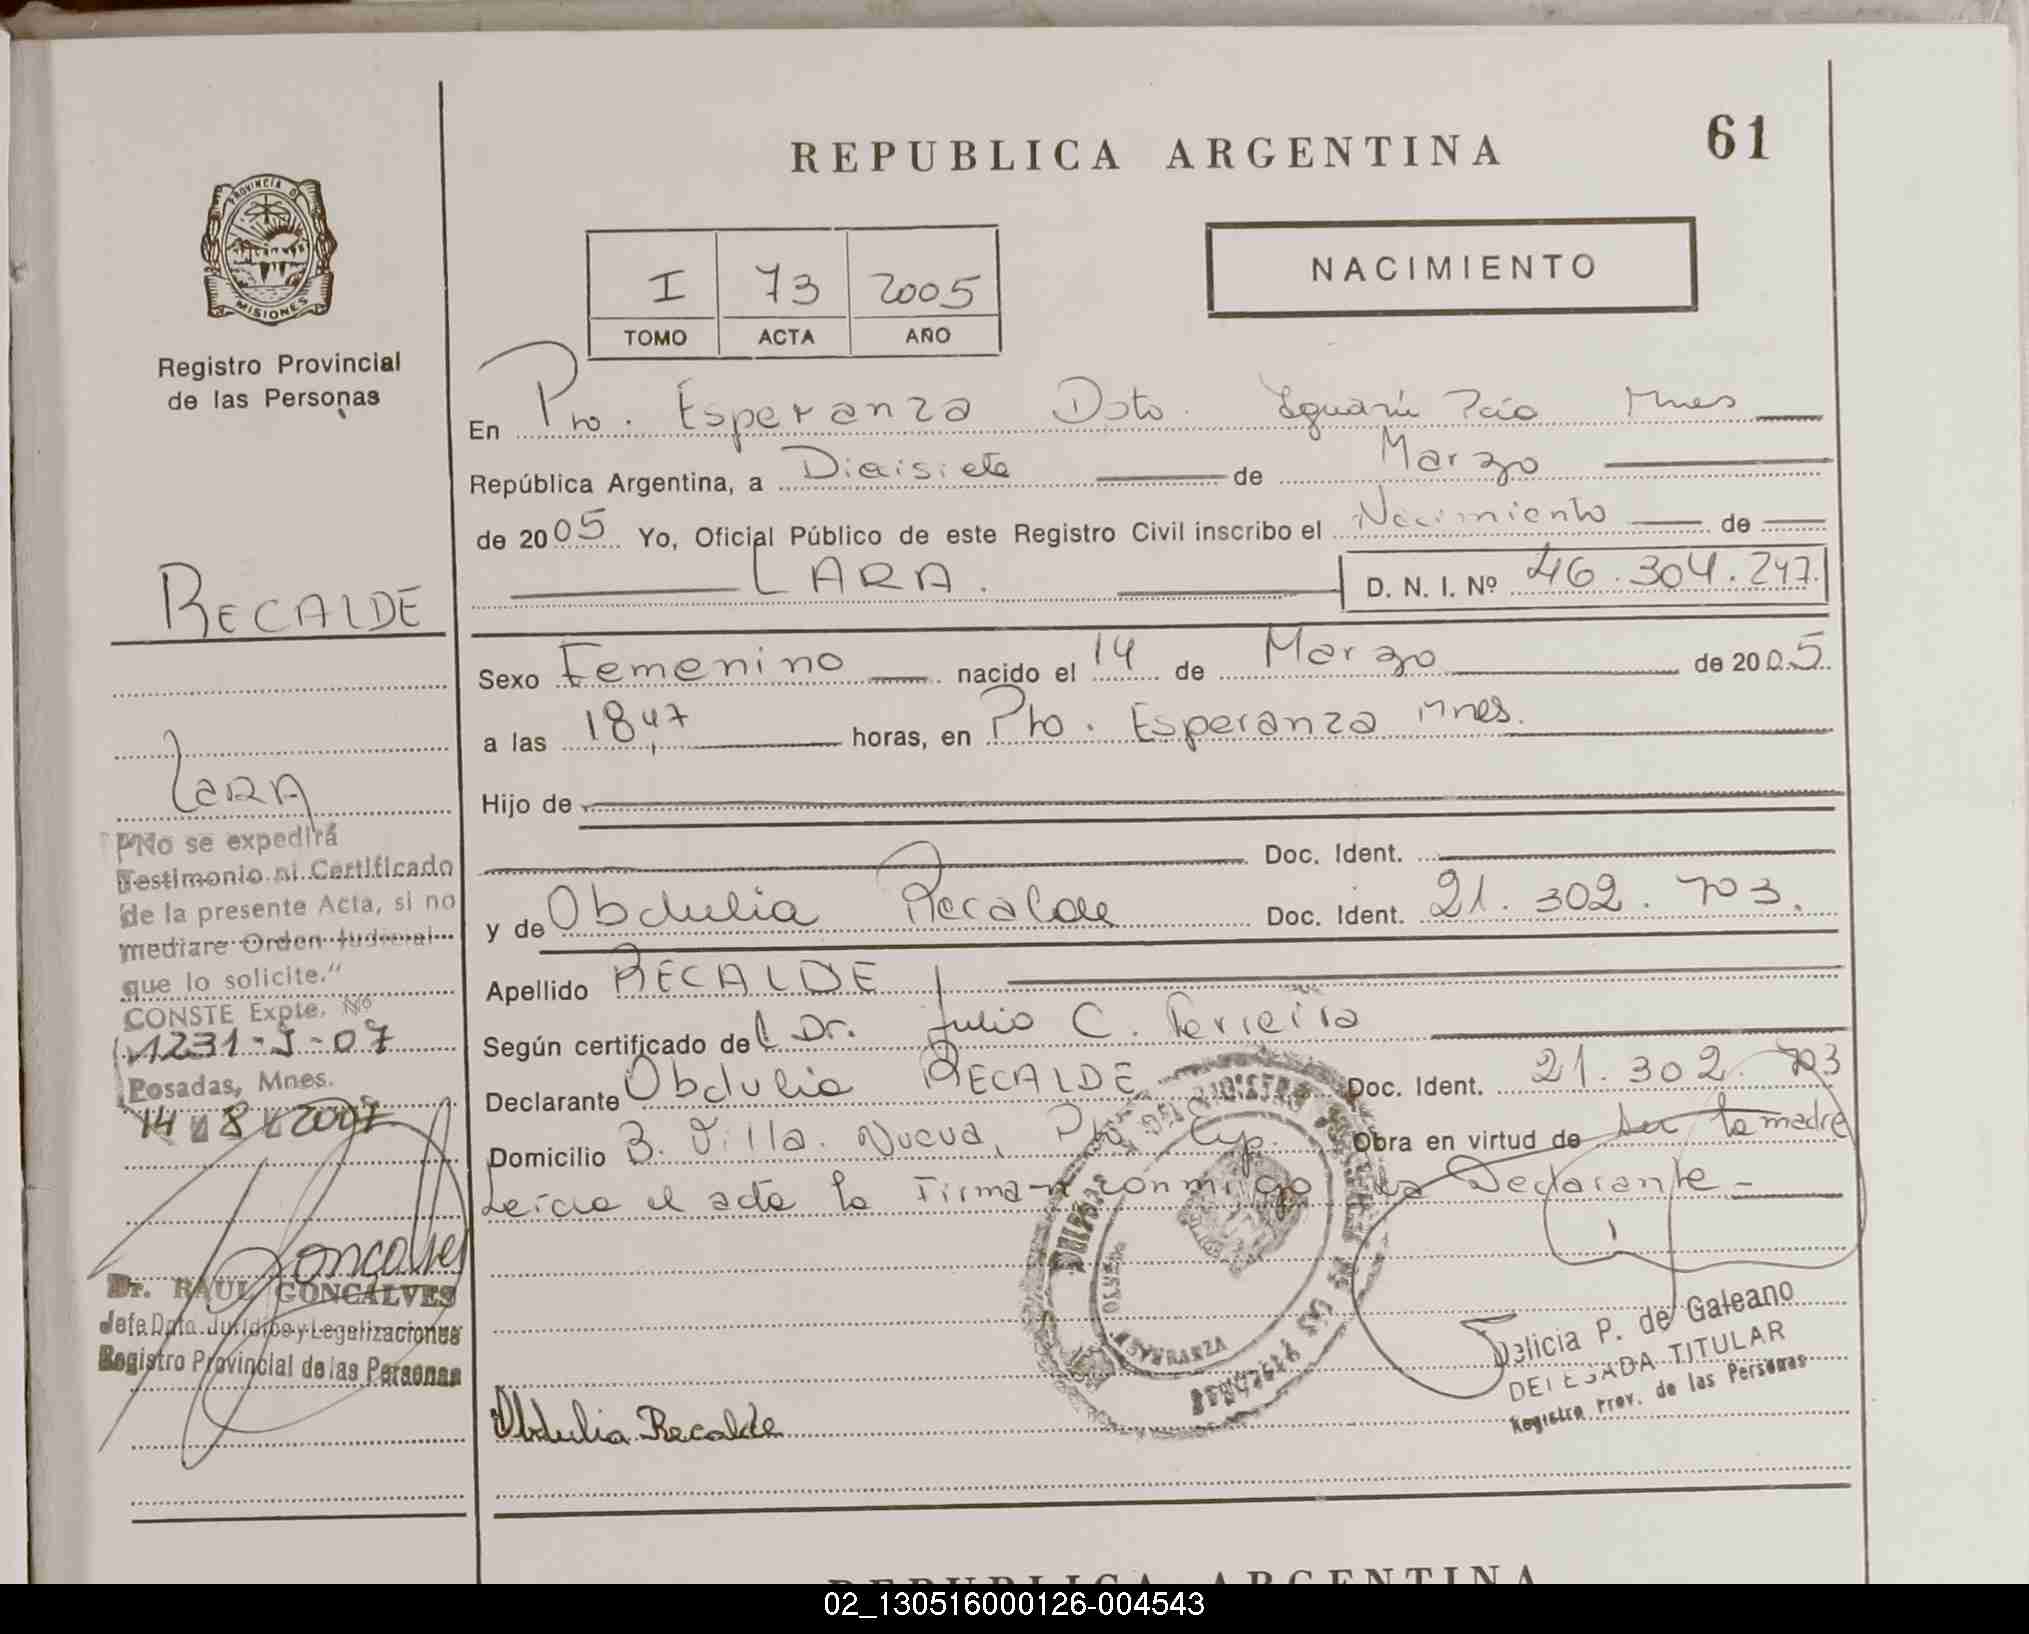 REPUBLICA ARGENTINA
61
PROVINCIA DE
MISIONES
Registro Provincial
de las Personas
I 73 2005
TOMO ACTA AÑO
NACIMIENTO
En Pto. Esperanza Dpto. Iguazú Pcia Mnes
República Argentina, a Diecisiete de Marzo
de 2005 Yo, Oficial Público de este Registro Civil inscribo el Nacimiento de
LARA. D. N. I. Nº 46.304.247.
RECALDE
Sexo Femenino nacido el 14 de Marzo de 2005
a las 18,47 horas, en Pto. Esperanza Mnes.
Lara
Hijo de
Doc. Ident.
y de Obdulia Recalde Doc. Ident. 21.302.703.
Apellido RECALDE
Según certificado del Dr. Julio C. Ferreira
Declarante Obdulia RECALDE Doc. Ident. 21.302.703
Domicilio B. Villa Nueva, Pto. Esp. Obra en virtud de ser la madre
Leída el acta la Firman conmigo la Declarante -
"No se expedirá
Testimonio ni Certificado
de la presente Acta, si no
mediare Orden Judicial
que lo solicite."
CONSTE Expte. Nº
1231-J-07
Posadas, Mnes.
14 8 2007
Goncalves
Dr. RAUL GONCALVES
Jefe Dpto. Jurídico y Legalizaciones
Registro Provincial de las Personas
PUERTO
ESPERANZA
Obdulia Recalde
Delicia P. de Galeano
DELEGADA TITULAR
Registro Prov. de las Personas
REPUBLICA ARGENTINA
02_130516000126-004543